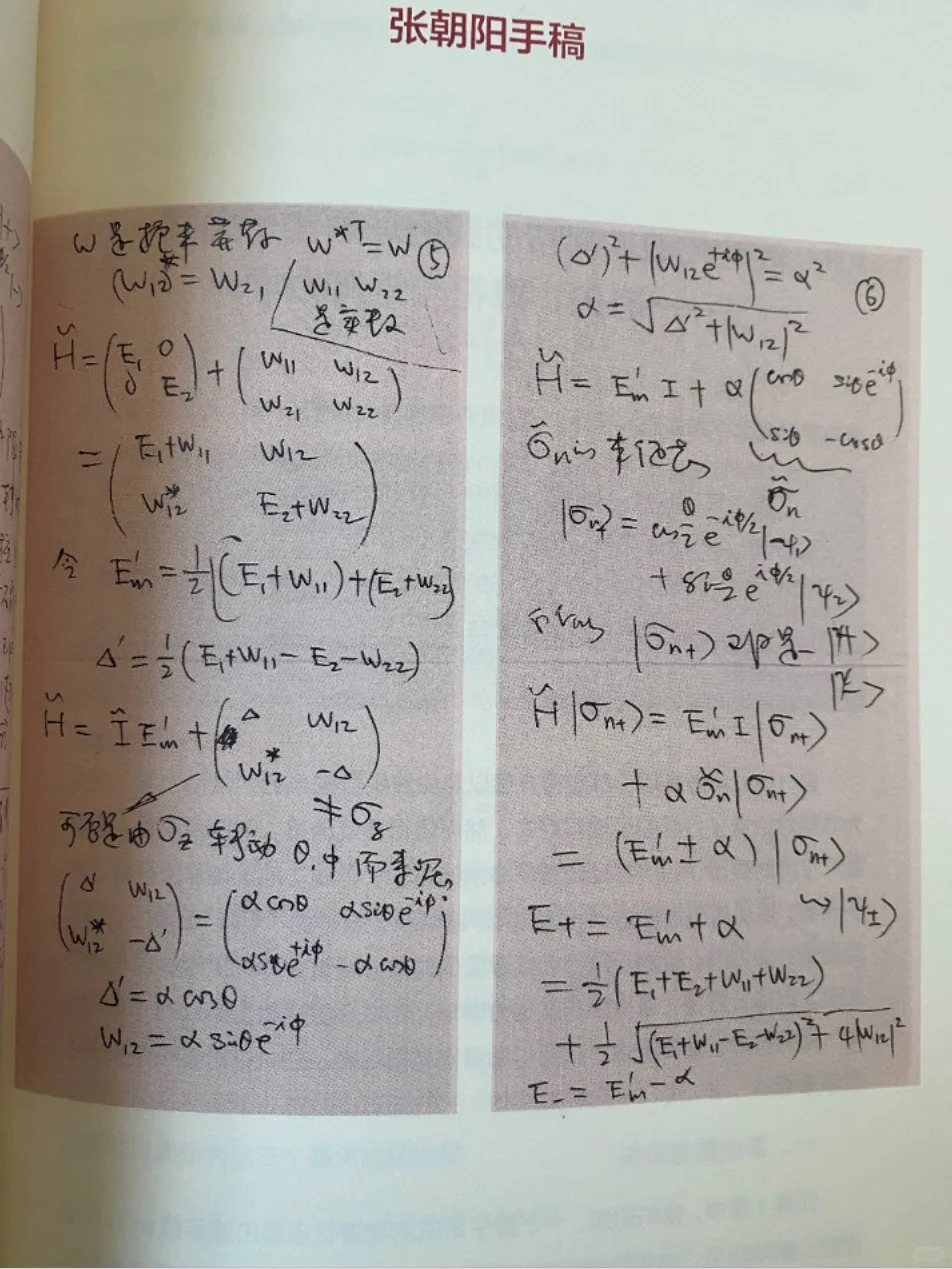 张朝阳手稿
W是抱率苛好 W*ᵀ = W ⑤
(W₁₂)* = W₂₁ / W₁₁ W₂₂
是实数
Ȟ = (E₁ 0
0 E₂) + (W₁₁ W₁₂
W₂₁ W₂₂)
= (E₁+W₁₁ W₁₂
W₁₂* E₂+W₂₂)
令 E′m = 1/2 [(E₁+W₁₁)+(E₂+W₂₂)]
Δ′ = 1/2 (E₁+W₁₁-E₂-W₂₂)
Ȟ = Ǐ E′m + (Δ W₁₂
W₁₂* -Δ)
≠ σz
可否是由 σz 转动 θ,φ 而来呢
(Δ′ W₁₂
W₁₂* -Δ′) = (α cosθ α sinθ e^-iφ
α sinθ e^+iφ -α cosθ)
Δ′ = α cosθ
W₁₂ = α sinθ e^-iφ
(Δ′)² + |W₁₂ e^+iφ|² = α² ⑥
α = √(Δ′² + |W₁₂|²)
Ȟ = E′m I + α (cosθ sinθ e^-iφ
sinθ -cosθ)
σ̌n 的本征态
σ̌n
|σn+⟩ = cos θ/2 e^-iφ/2 |ψ₁⟩
+ sin θ/2 e^iφ/2 |ψ₂⟩
|σn+⟩ 即是 |ψ+⟩
|ψ-⟩
Ȟ |σn+⟩ = E′m I |σn+⟩
+ α σ̌n |σn+⟩
= (E′m ± α) |σn±⟩
E+ = E′m + α ↪ |ψ±⟩
= 1/2 (E₁+E₂+W₁₁+W₂₂)
+ 1/2 √((E₁+W₁₁-E₂-W₂₂)² + 4|W₁₂|²)
E- = E′m - α